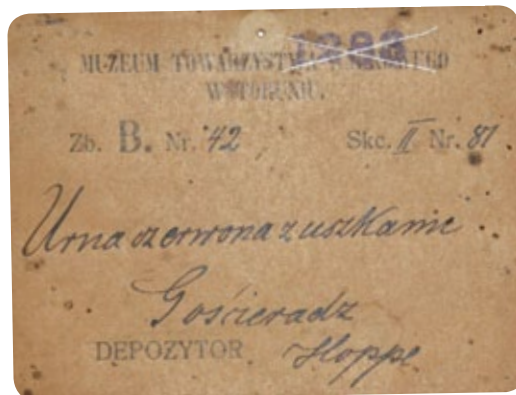 MUZEUM TOWARZYSTWA NAUKOWEGO
W TORUNIU.
Zb. B. Nr. 42 Skc. II Nr. 81
Urna czerwona z uszkami
Gościeradz
DEPOZYTOR Hoppe